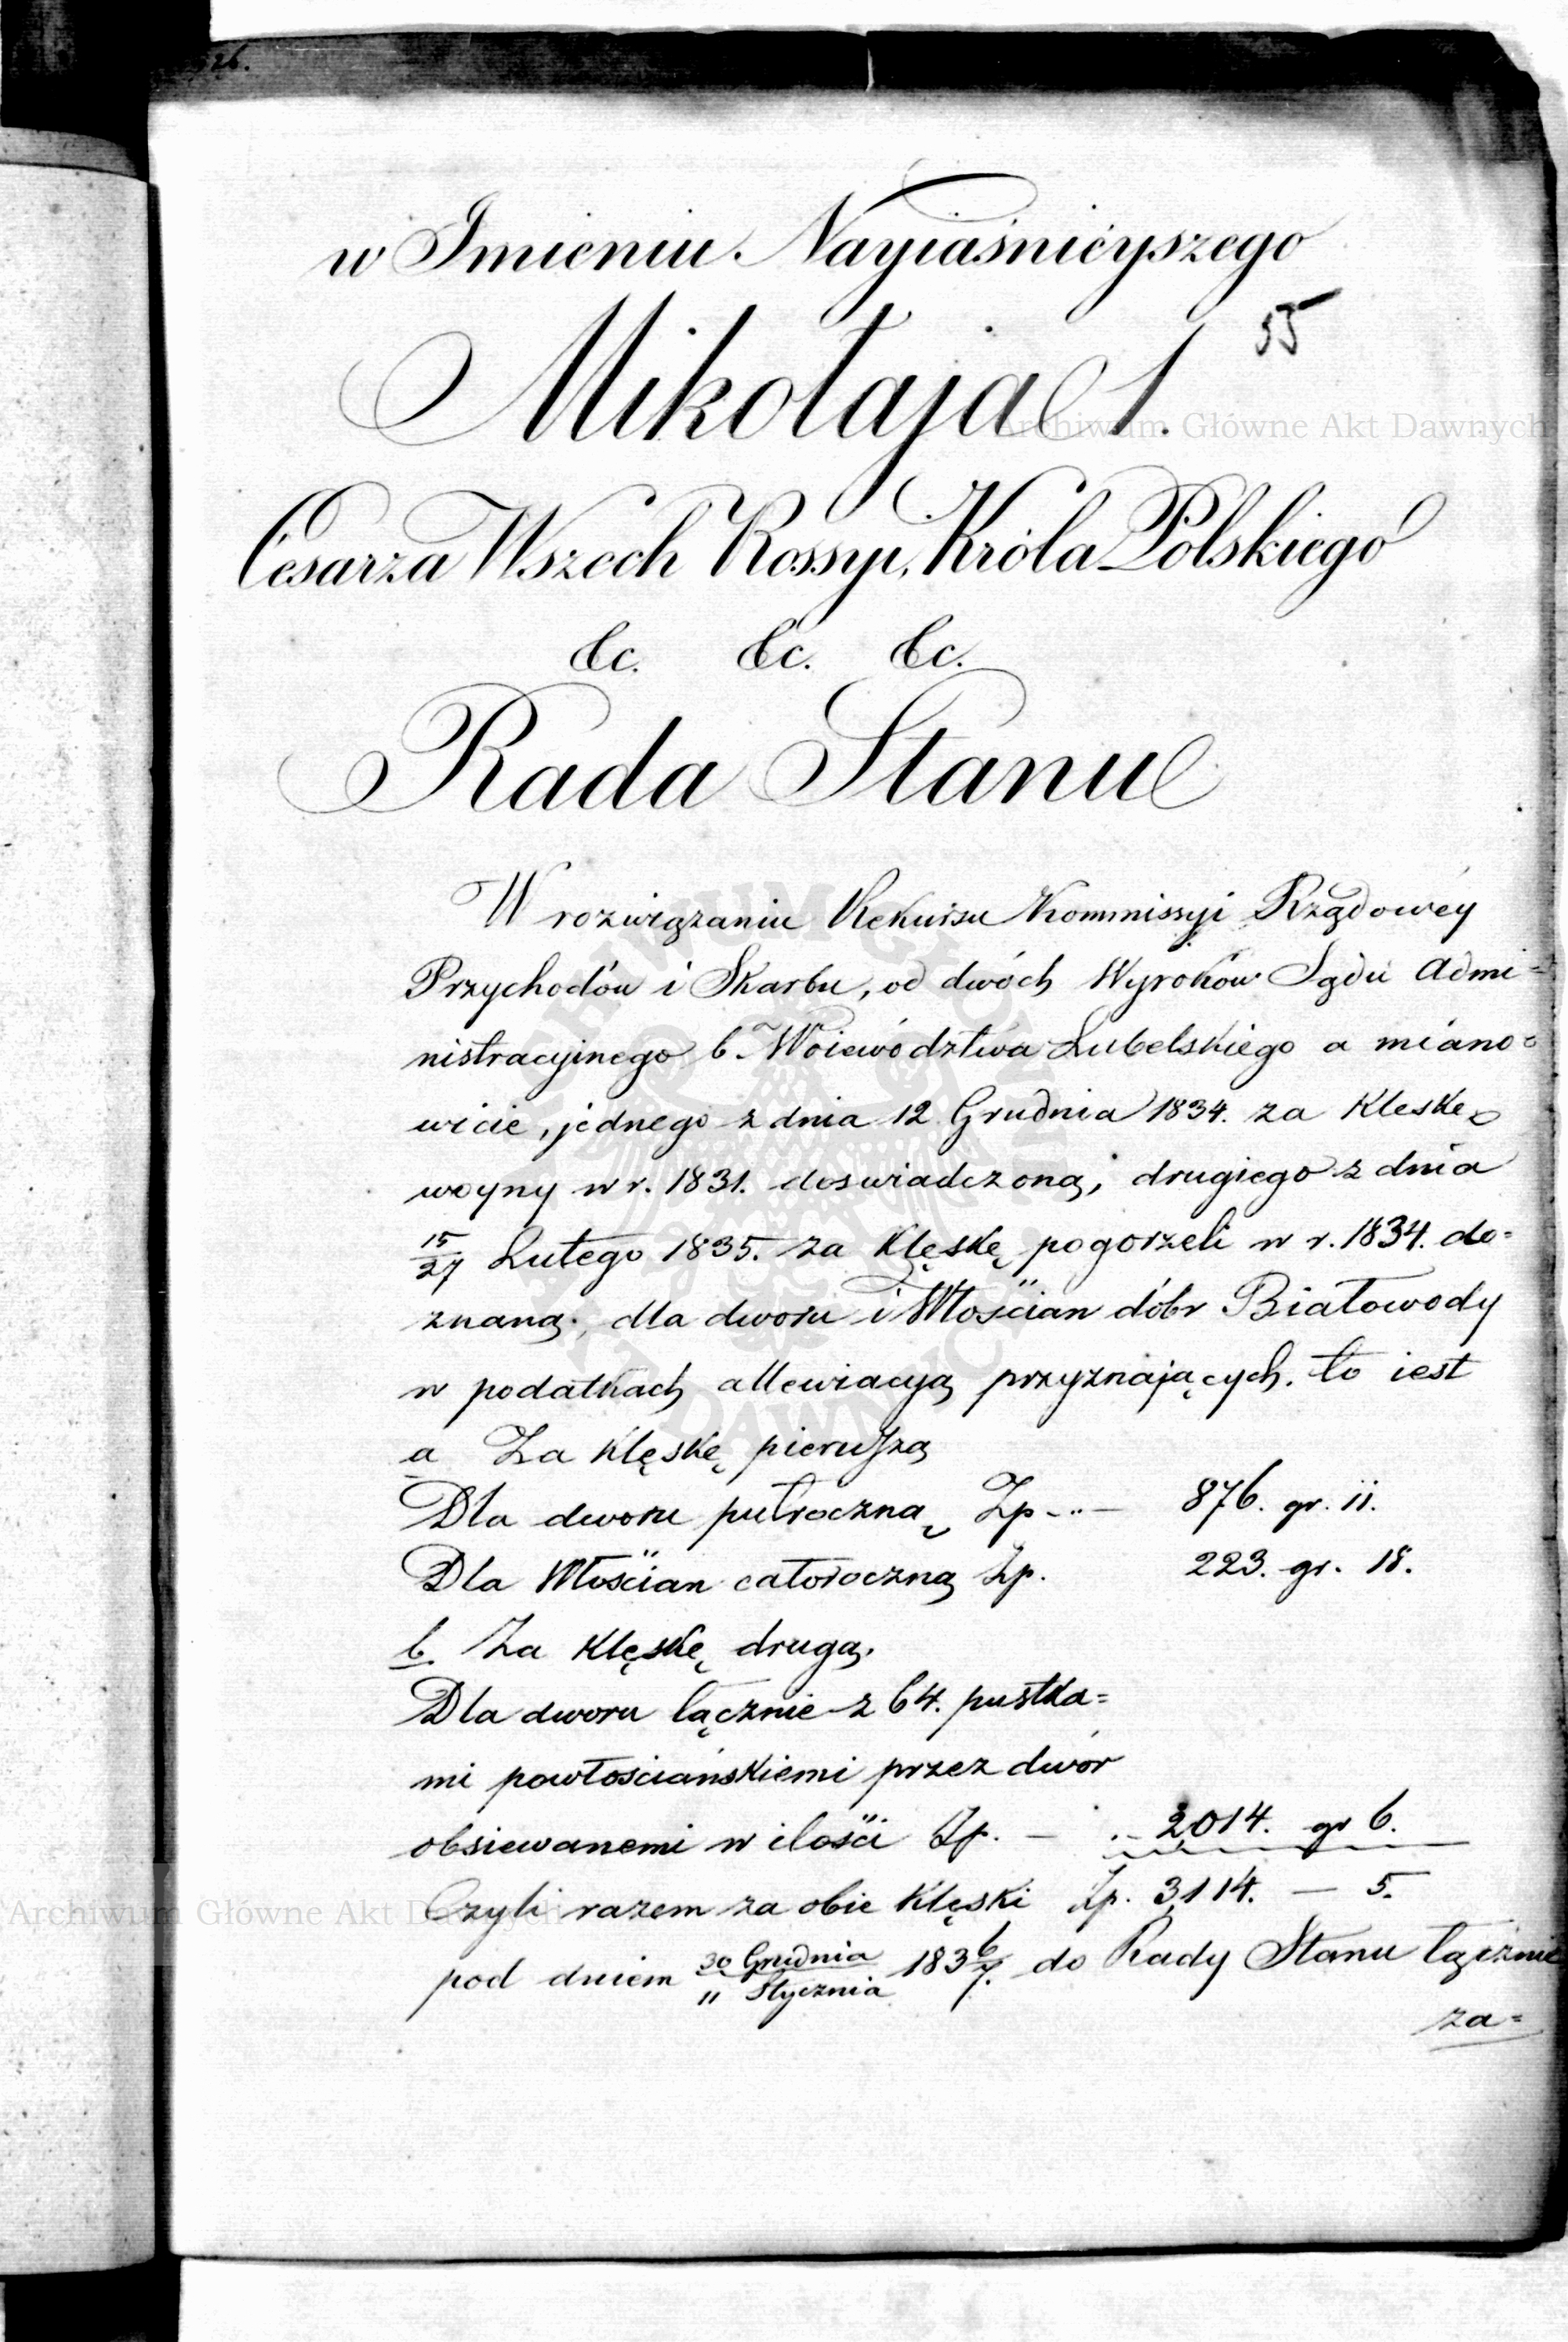 26.
w Imieniu Nayiaśnieyszego
55
Mikołaja 1.
Cesarza Wszech Rossyi, Króla Polskiego
&c. &c. &c.
Rada Stanu
W rozwiązaniu Rekursu Kommissyi Rządowéy
Przychodów i Skarbu, od dwóch Wyroków Sądu Admi=
nistracyjnego b. Woiewództwa Lubelskiego a miano=
wicie, jednego z dnia 12 Grudnia 1834. za Kleskę
woyny w r. 1831. doswiadczoną; drugiego z dnia
15/27 Lutego 1835. za Klęskę pogorzeli w r. 1834. do=
znaną, dla dworu i Włościan dóbr Białowody
w podatkach allewiacyą przyznających. to iest
a Za Klęskę pierwszą
Dla dworu pułroczną Zp -..- 876. gr. 11.
Dla Włościan całoroczną Zp. 223. gr. 18.
b. Za Klęskę drugą.
Dla dworu łącznie z 64. pustka=
mi powłościańskiemi przez dwór
obsiewanemi w ilości Zp. - .. 2,014. gr 6.
Czyli razem za obie Klęski Zp. 3,114. — 5.
pod dniem 30 Grudnia/11 Stycznia 1836/7. do Rady Stanu łącznie
za=
Archiwum Główne Akt Dawnych
Archiwum Główne Akt Dawnych
ARCHIWUM GŁÓWNE AKT DAWNYCH